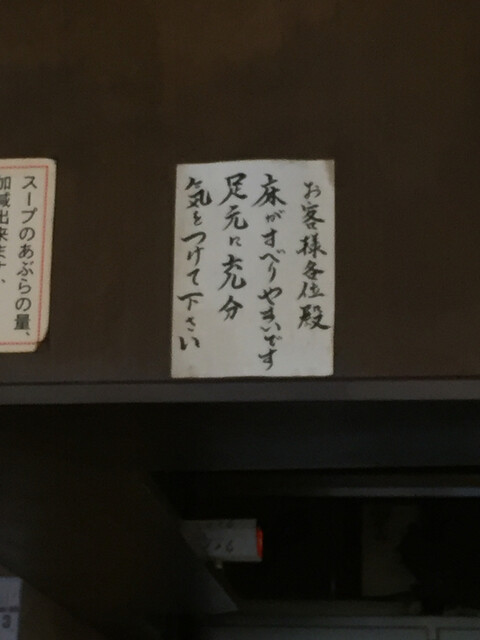 お客様各位殿
床がすべりやすいです
足元に充分
気をつけて下さい
スープのあぶらの量、
加減出来ます、